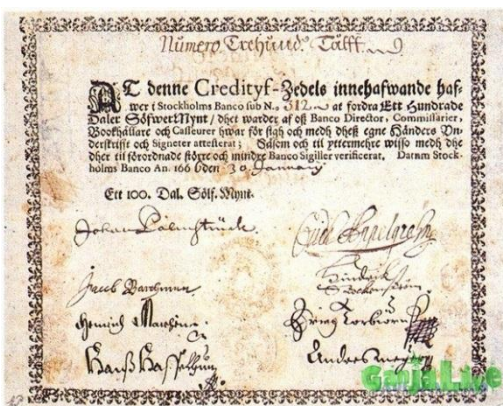 Numero Trehund. Tolff.
AT denne Credityf-Zedels innehafwande haf-
wer i Stockholms Banco sub N.o 312. at fordra Ett Hundrade
Daler SölfwerMynt / dhet warder af oß Banco Director, Commissarier,
Bookhållare och Casseurer hwar för sigh och medh dheß egne Händers Un-
derskrifft och Signeter attesterat; Såsom och til yttermehre wisso medh dhe
dher til förordnade större och mindre Banco Sigiller verificerat. Datum Stock-
holms Banco An. 1666 den 30. January
Ett 100. Dal. Sölf. Mynt.
Johan Palmstruch
Jacob
Hendrich
Hanß
Anders
GanjaLive